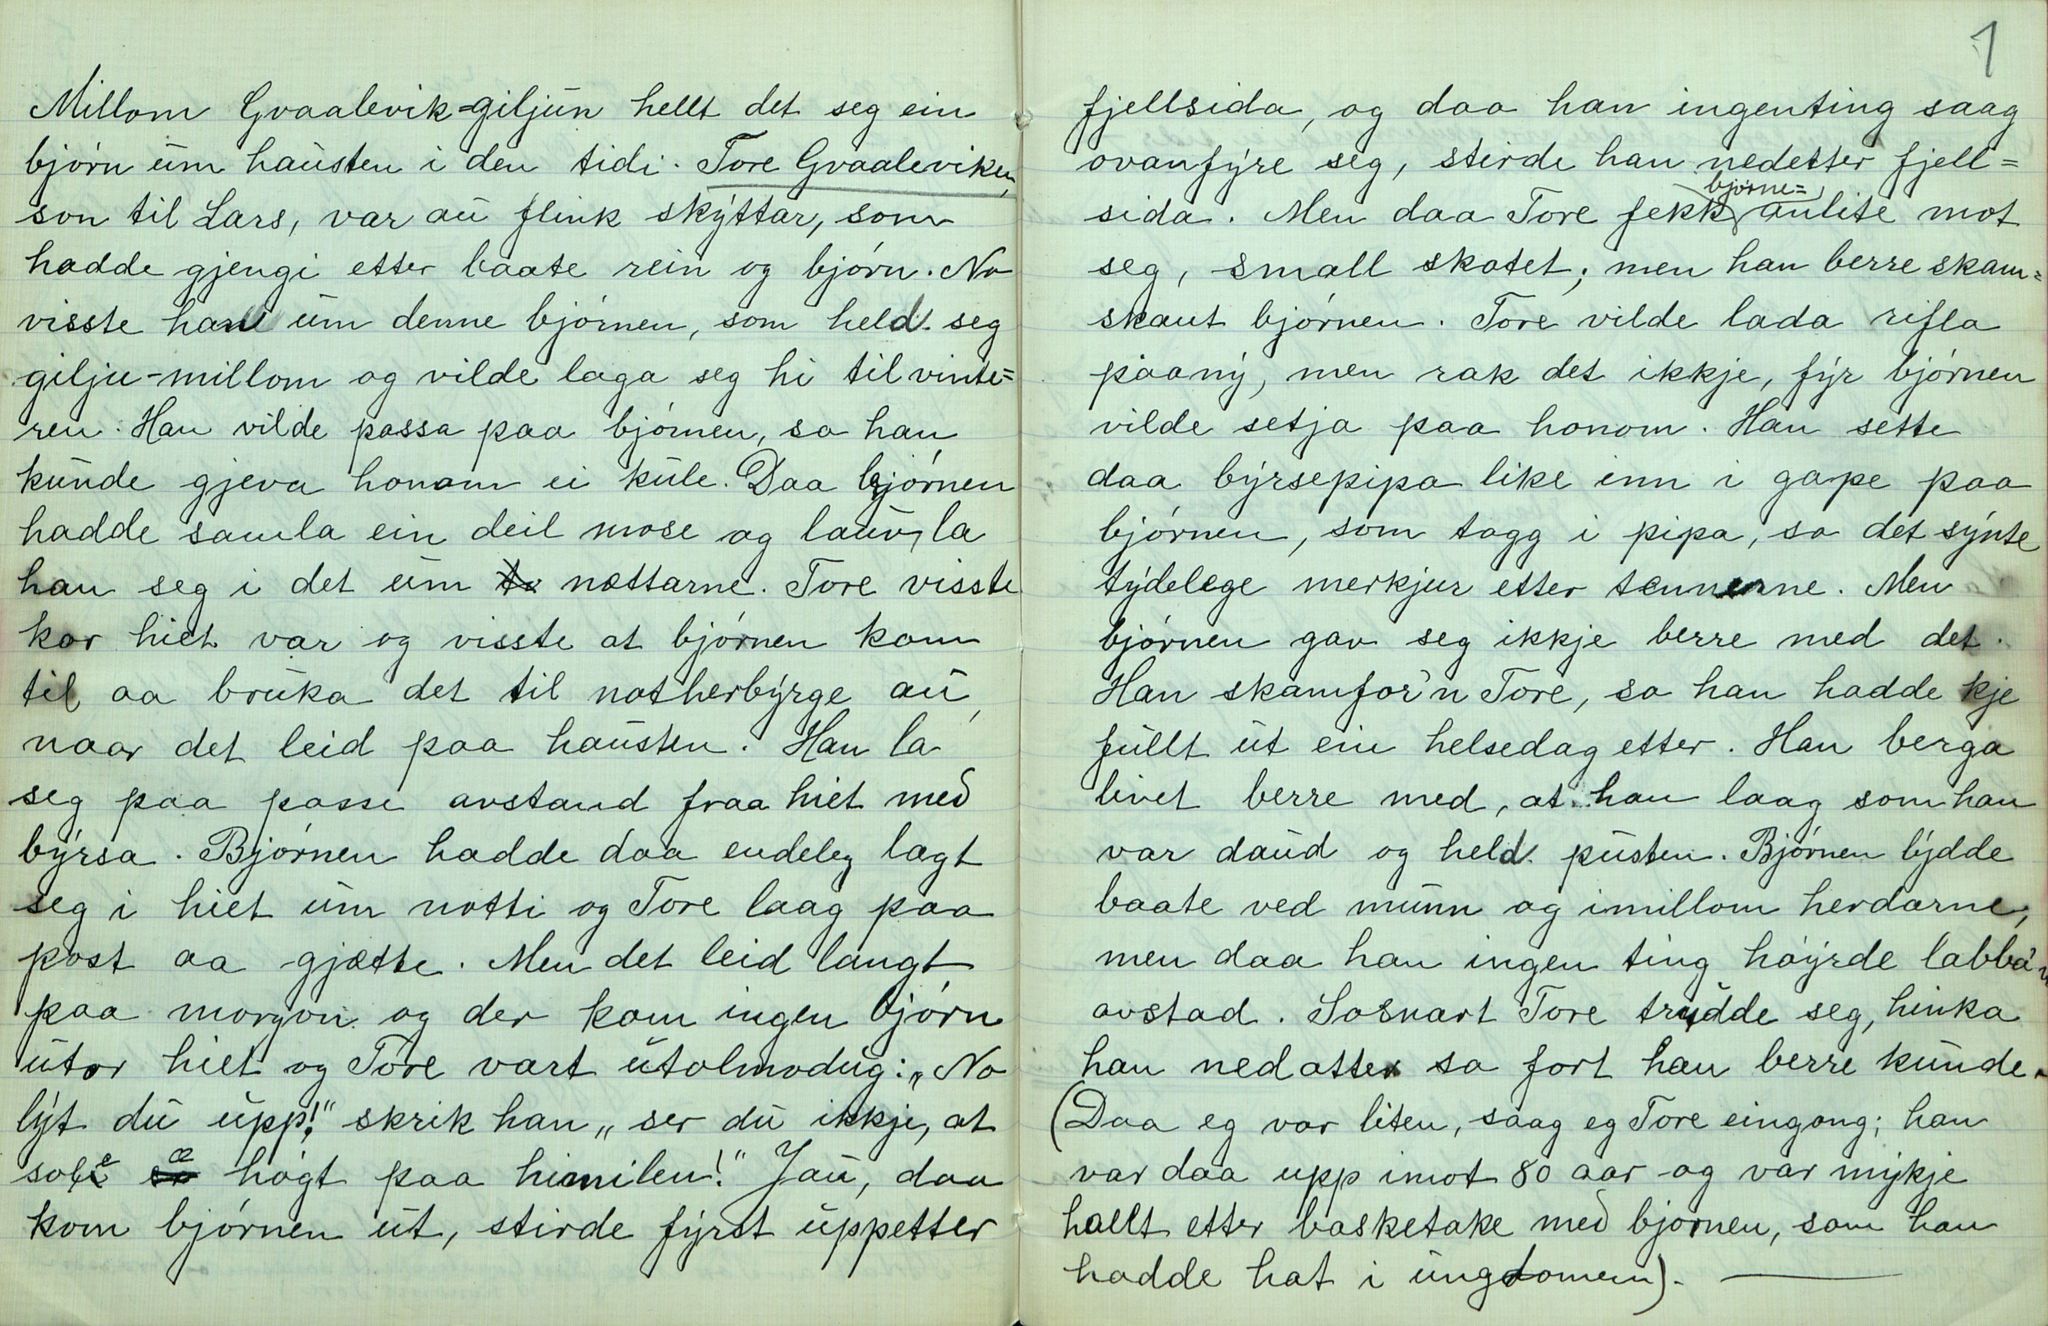 Millom Gvaalevik-giljun hellt det seg ein
bjørn um hausten i den tidi. Tore Gvaaleviken,
son til Lars, var au flink skyttar, som
hadde gjengi etter baate rein og bjørn. No
visste han um denne bjørnen, som held seg
gilju-millom og vilde laga seg hi til vinte=
ren. Han vilde passa paa bjørnen, so han
kunde gjeva honom ei kule. Daa bjørnen
hadde samla ein deil mose og lauv, la
han seg i det um nættarne. Tore visste
kor hiet var og visste at bjørnen kom
til aa bruka det til natherbyrge au,
naar det leid paa hausten. Han la
seg paa passe avstand fraa hiet med
byrsa. Bjørnen hadde daa endeleg lagt
seg i hiet um notti og Tore laag paa
post aa gjætte. Men det leid langt
paa morgon og der kom ingen bjørn
utor hiet og Tore vart utolmodug: „No
lyt du upp!" skrik han „ser du ikkje, at
sole æ høgt paa himilen!" Jau, daa
kom bjørnen ut, stirde fyrst uppetter
1
fjellsida, og daa han ingenting saag
ovanfyre seg, stirde han nedetter fjell=
sida. Men daa Tore fekk bjørne=anlite mot
seg, small skotet; men han berre skam=
skaut bjørnen. Tore vilde lada rifla
paany, men rak det ikkje, fyr bjørnen
vilde setja paa honom. Han sette
daa byrsepipa like inn i gape paa
bjørnen, som togg i pipa, so det synte
tydelege merkjur etter tennerne. Men
bjørnen gav seg ikkje berre med det.
Han skamfor'n Tore, so han hadde kje
fullt ut ein helsedag etter. Han berga
livet berre med, at han laag som han
var daud og held pusten. Bjørnen lydde
baate ved munn og imillom herdarne;
men daa han ingen ting høyrde labba'n
avstad. Sosnart Tore trudde seg, hinka
han nedatter so fort han berre kunde.
(Daa eg var liten, saag eg Tore eingong; han
var daa upp imot 80 aar og var mykje
hallt etter basketake med bjørnen, som han
hadde hat i ungdomen).